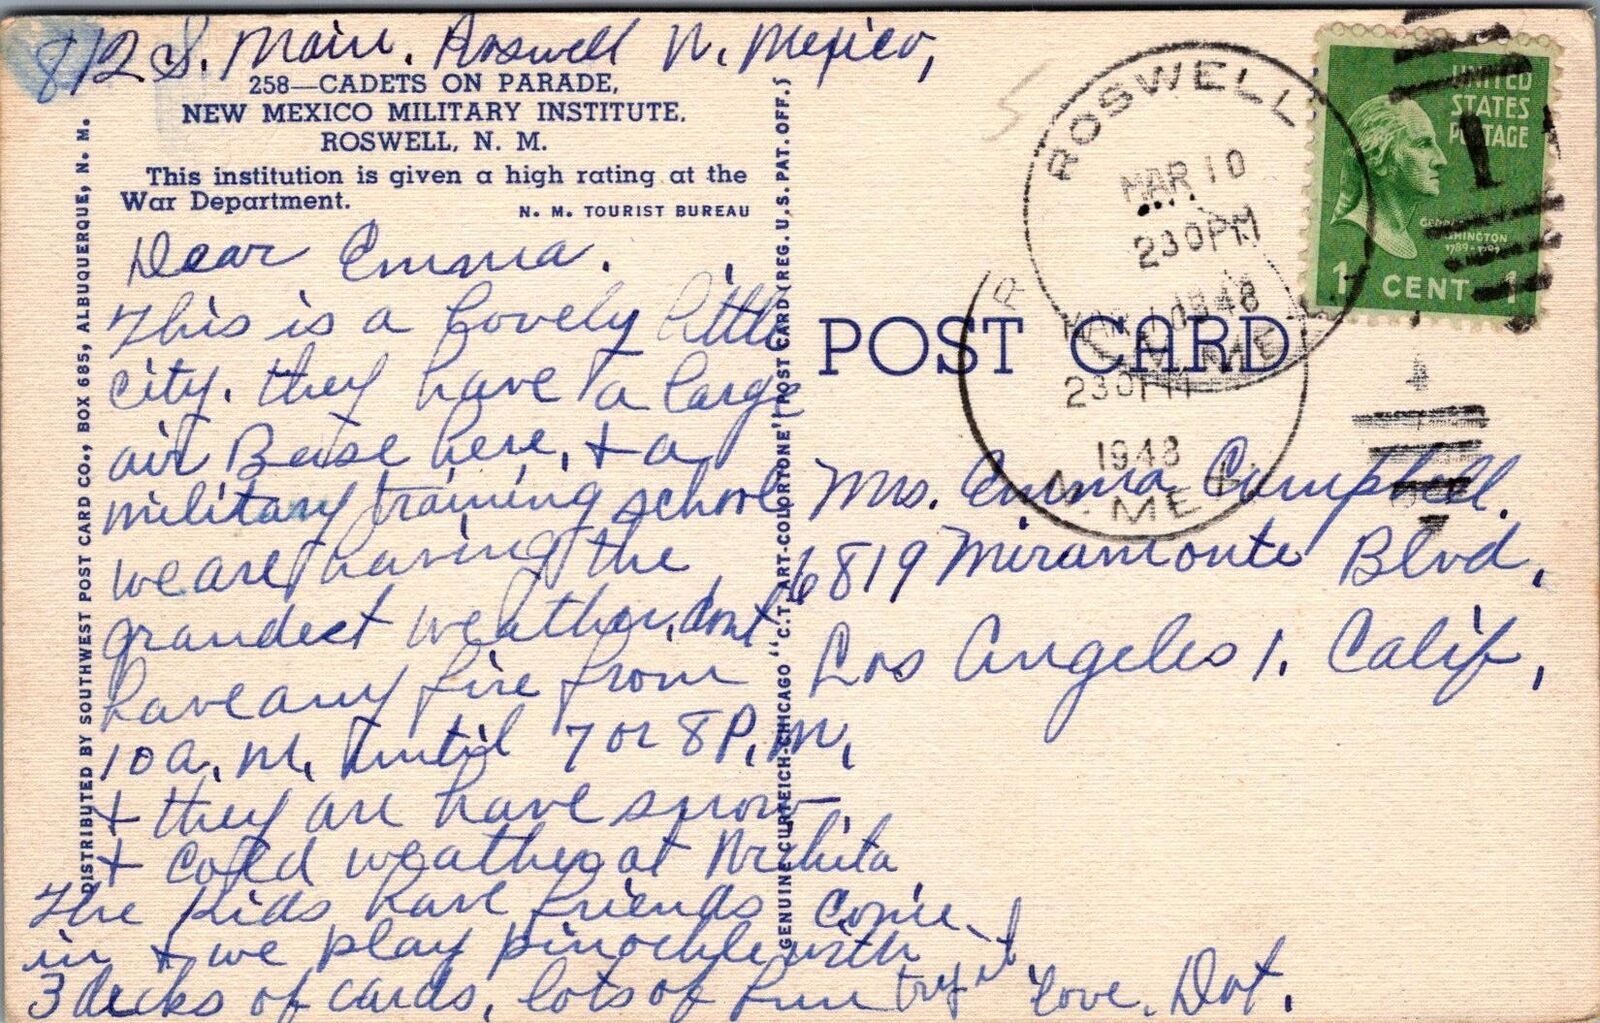 812 S. Main. Roswell N. Mexico,
258—CADETS ON PARADE,
NEW MEXICO MILITARY INSTITUTE,
ROSWELL, N. M.
This institution is given a high rating at the
War Department.
N. M. TOURIST BUREAU
Dear Emma.
This is a lovely little
city. they have a large
air Base here, + a
military training school
we are having the
grandest weather, dont
have any fire from
10 a. m. until 7 or 8 P. m,
+ they are have snow
+ cold weather at Wichita
The kids have friends come
in + we play pinochle with
3 decks of cards, lots of fun try it
Love. Dot.
DISTRIBUTED BY SOUTHWEST POST CARD CO., BOX 685, ALBUQUERQUE, N. M.
GENUINE CURTEICH-CHICAGO "C.T. ART-COLORTONE" POST CARD (REG. U.S. PAT. OFF.)
POST CARD
ROSWELL
MAR 10
230PM
1948
N. MEX.
230PM
1948
N. MEX.
UNITED
STATES
POSTAGE
WASHINGTON
1789-1797
1 CENT 1
Mrs. Emma Campbell.
6819 Miramonte Blvd,
Los Angeles 1. Calif,